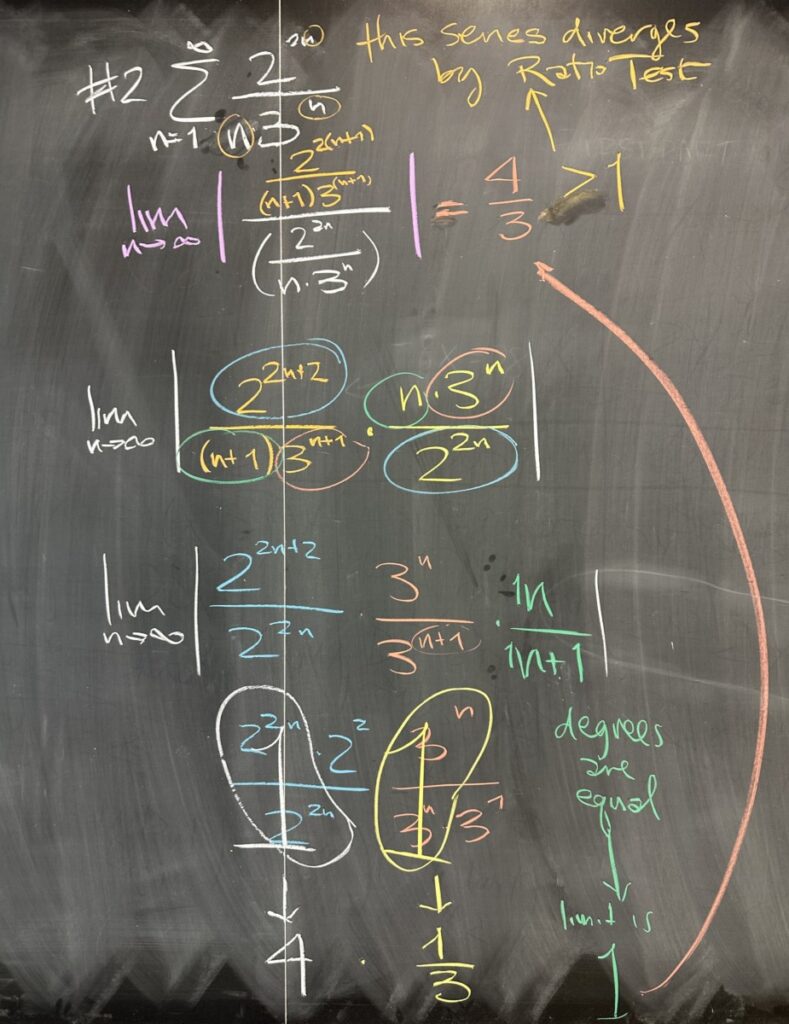 this series diverges
by Ratio Test
#2 ∑_{n=1}^{∞} 2^{2n} / (n 3^{n})
lim_{n→∞} | (2^{2(n+1)} / ((n+1) 3^{(n+1)})) / (2^{2n} / (n·3^{n})) | = 4/3 > 1
lim_{n→∞} | 2^{2n+2} / ((n+1) 3^{n+1}) · n·3^{n} / 2^{2n} |
lim_{n→∞} | 2^{2n+2} / 2^{2n} · 3^{n} / 3^{n+1} · 1n / 1n+1 |
(2^{2n} · 2^{2}) / 2^{2n} 3^{n} / (3^{n} · 3^{1})
degrees
are
equal
limit is
4 · 1/3 1